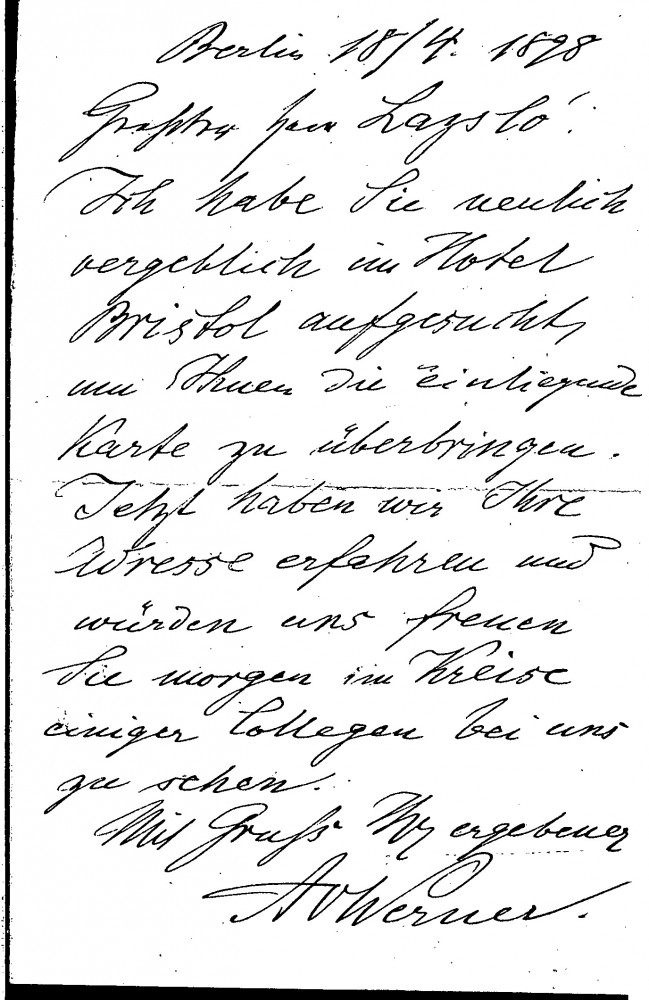 Berlin 18/4. 1898
Geehrter Herr Lázsló!
Ich habe Sie neulich
vergeblich im Hotel
Bristol aufgesucht,
um Ihnen die einliegende
Karte zu überbringen.
Jetzt haben wir Ihre
Adresse erfahren und
würden uns freuen
Sie morgen im Kreise
einiger Collegen bei uns
zu sehen.
Mit Gruss Ihr ergebener
AvWerner.